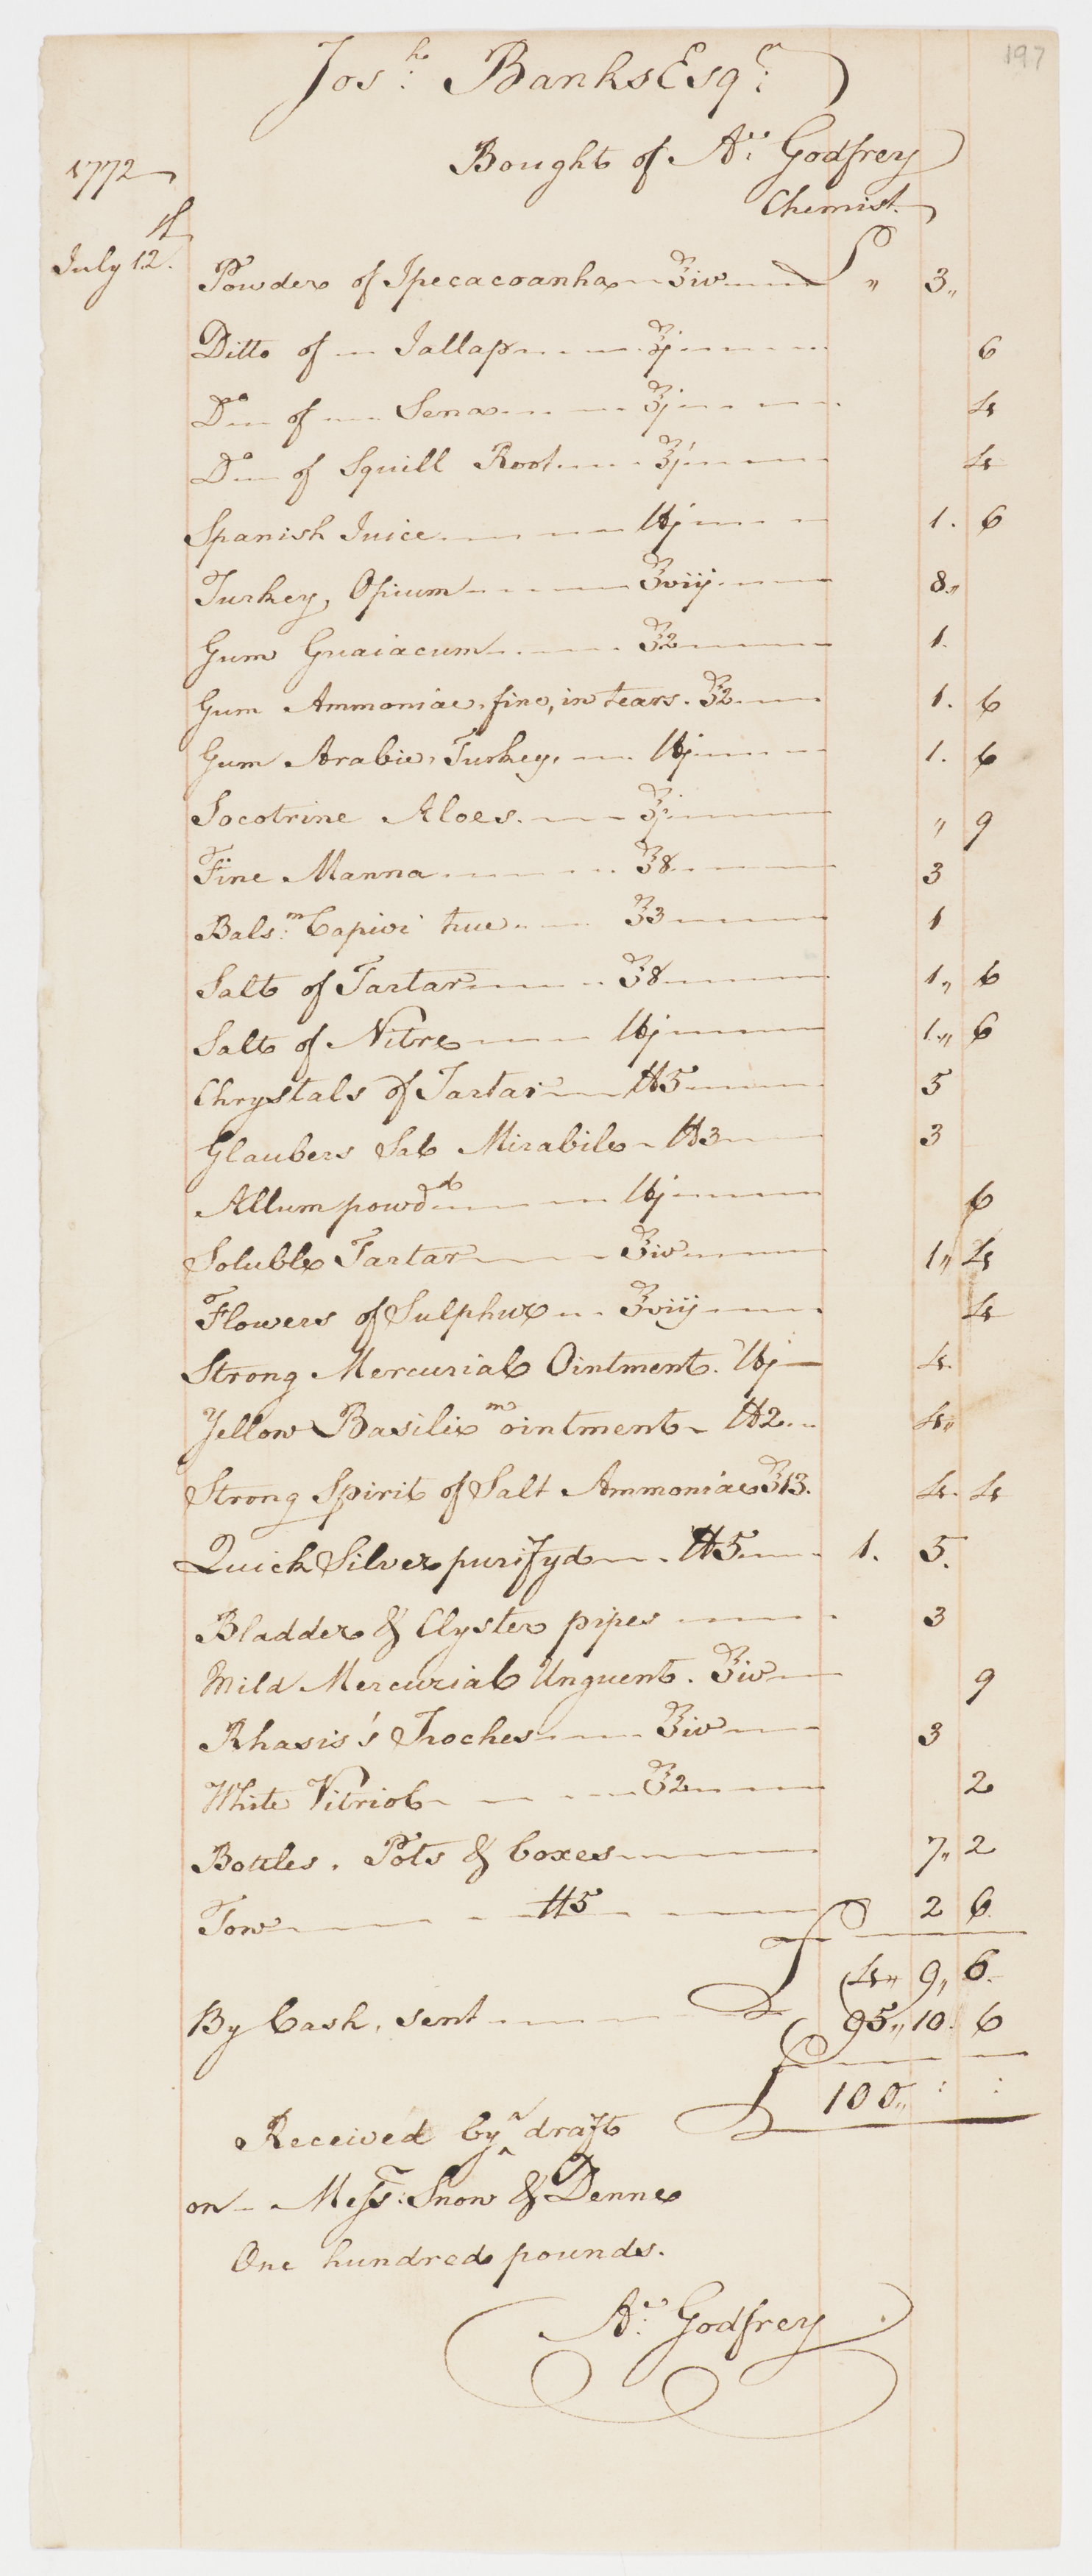 197
Josh: Banks Esqr:
1772
Bought of Ae: Godfrey
Chemist.
July 12th. Powder of Ipecacoanha ℥iv £ " 3"
Ditto of Jallap ℥j 6
Do of Sena ℥j 4
Do of Squill Root ℥j 4
Spanish Juice ℔j 1. 6
Turkey, Opium ℥viij 8"
Gum Guaiacum ℥2 1.
Gum Ammoniac. fine, in tears. ℥2 1. 6
Gum Arabic, Turkey, ℔j 1. 6
Socotrine Aloes. ℥j " 9
Fine Manna ℥8 3
Balsm: Capivi true ℥3 1
Salt of Tartar ℥8 1" 6
Salt of Nitre ℔j 1" 6
Chrystals of Tartar ℔5 5
Glaubers Sal Mirabile ℔3 3
Allum powdd ℔j 6
Soluble Tartar ℥iv 1" 4
Flowers of Sulphur ℥viij 4
Strong Mercurial Ointment. ℔j 4.
Yellow Basilicm ointment ℔2 4"
Strong Spirit of Salt Ammoniac ℥13. 4. 4
Quick Silver purifyd ℔5 1. 5.
Bladder & Clyster pipes 3
Mild Mercurial Unguent. ℥iv 9
Rhasis's Troches ℥iv 3
White Vitriol ℥2 2
Bottles. Pots & boxes 7" 2
Tow ℔5 2 6
£ 4" 9" 6.
By Cash, sent 95" 10. 6
£ 100" : :
Received by a draft
on Messrs: Snow & Denne
One hundred pounds.
Ae: Godfrey